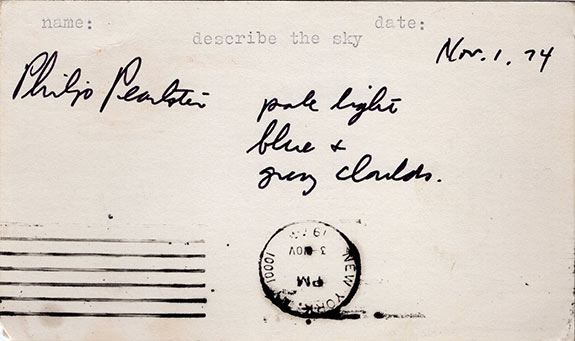 name: date:
describe the sky
Nov. 1, 74
Philip Pearlstein
pale light
blue +
grey clouds.
NEW YORK, NY 10001
PM
3 NOV
197